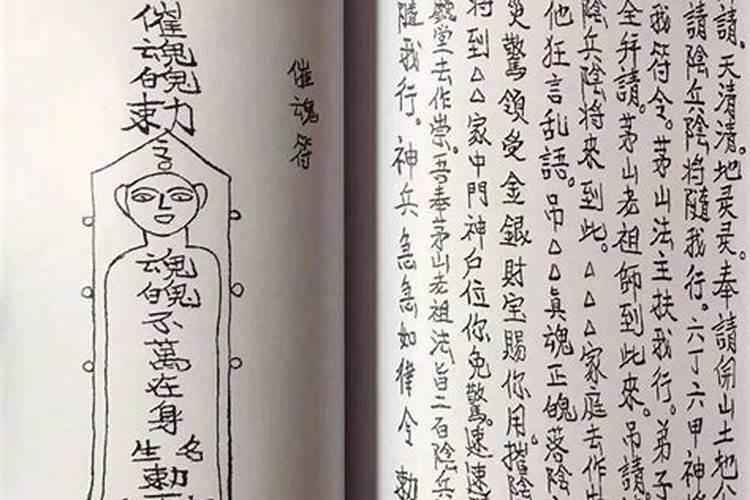 請。天清清。地灵灵。奉請開山土地公
請陰兵陰将隨我行。六丁六甲神将
我符令。茅山法主扶我行。弟子
全拜請。茅山老祖師到此來。吊請
陰兵陰将來到此。△△△家庭去作
他狂言乱語。吊△△真魂正魄落陰
災驚領受金銀財宝賜你用。摧陰
将到△△家中門神户位你免驚。速速
堂去作祟。吾奉茅山老祖法旨二百陰兵
隨我行。神兵急急如律令 勅
催魂符
催魂魄勅
魂魄不萬在身
名
生
勅